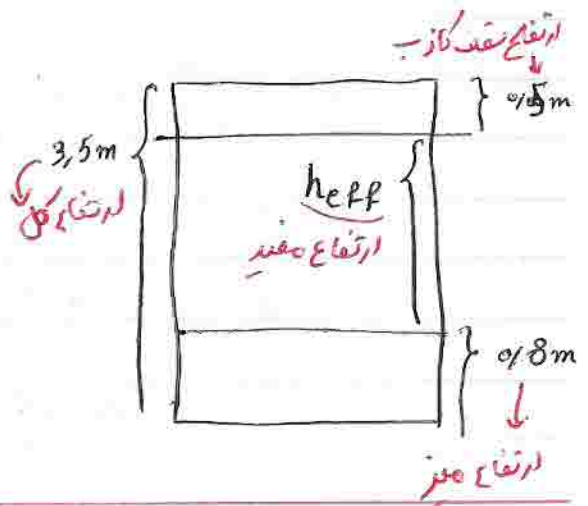 ارتفاع سقف کاذب
0/5m
3,5m
ارتفاع کل
heff
ارتفاع مفید
0/8m
ارتفاع میز